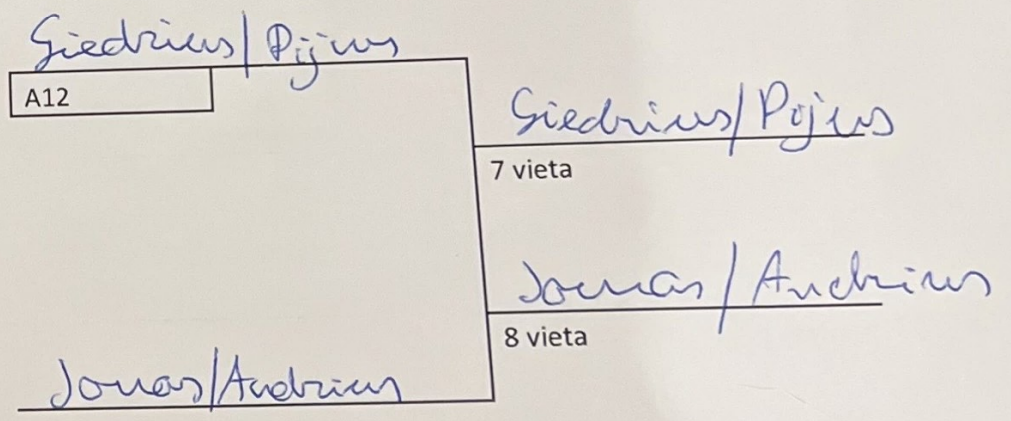 Giedrius/Pijus
A12
Giedrius/Pijus
7 vieta
Jonas/Andrius
8 vieta
Jonas/Andrius